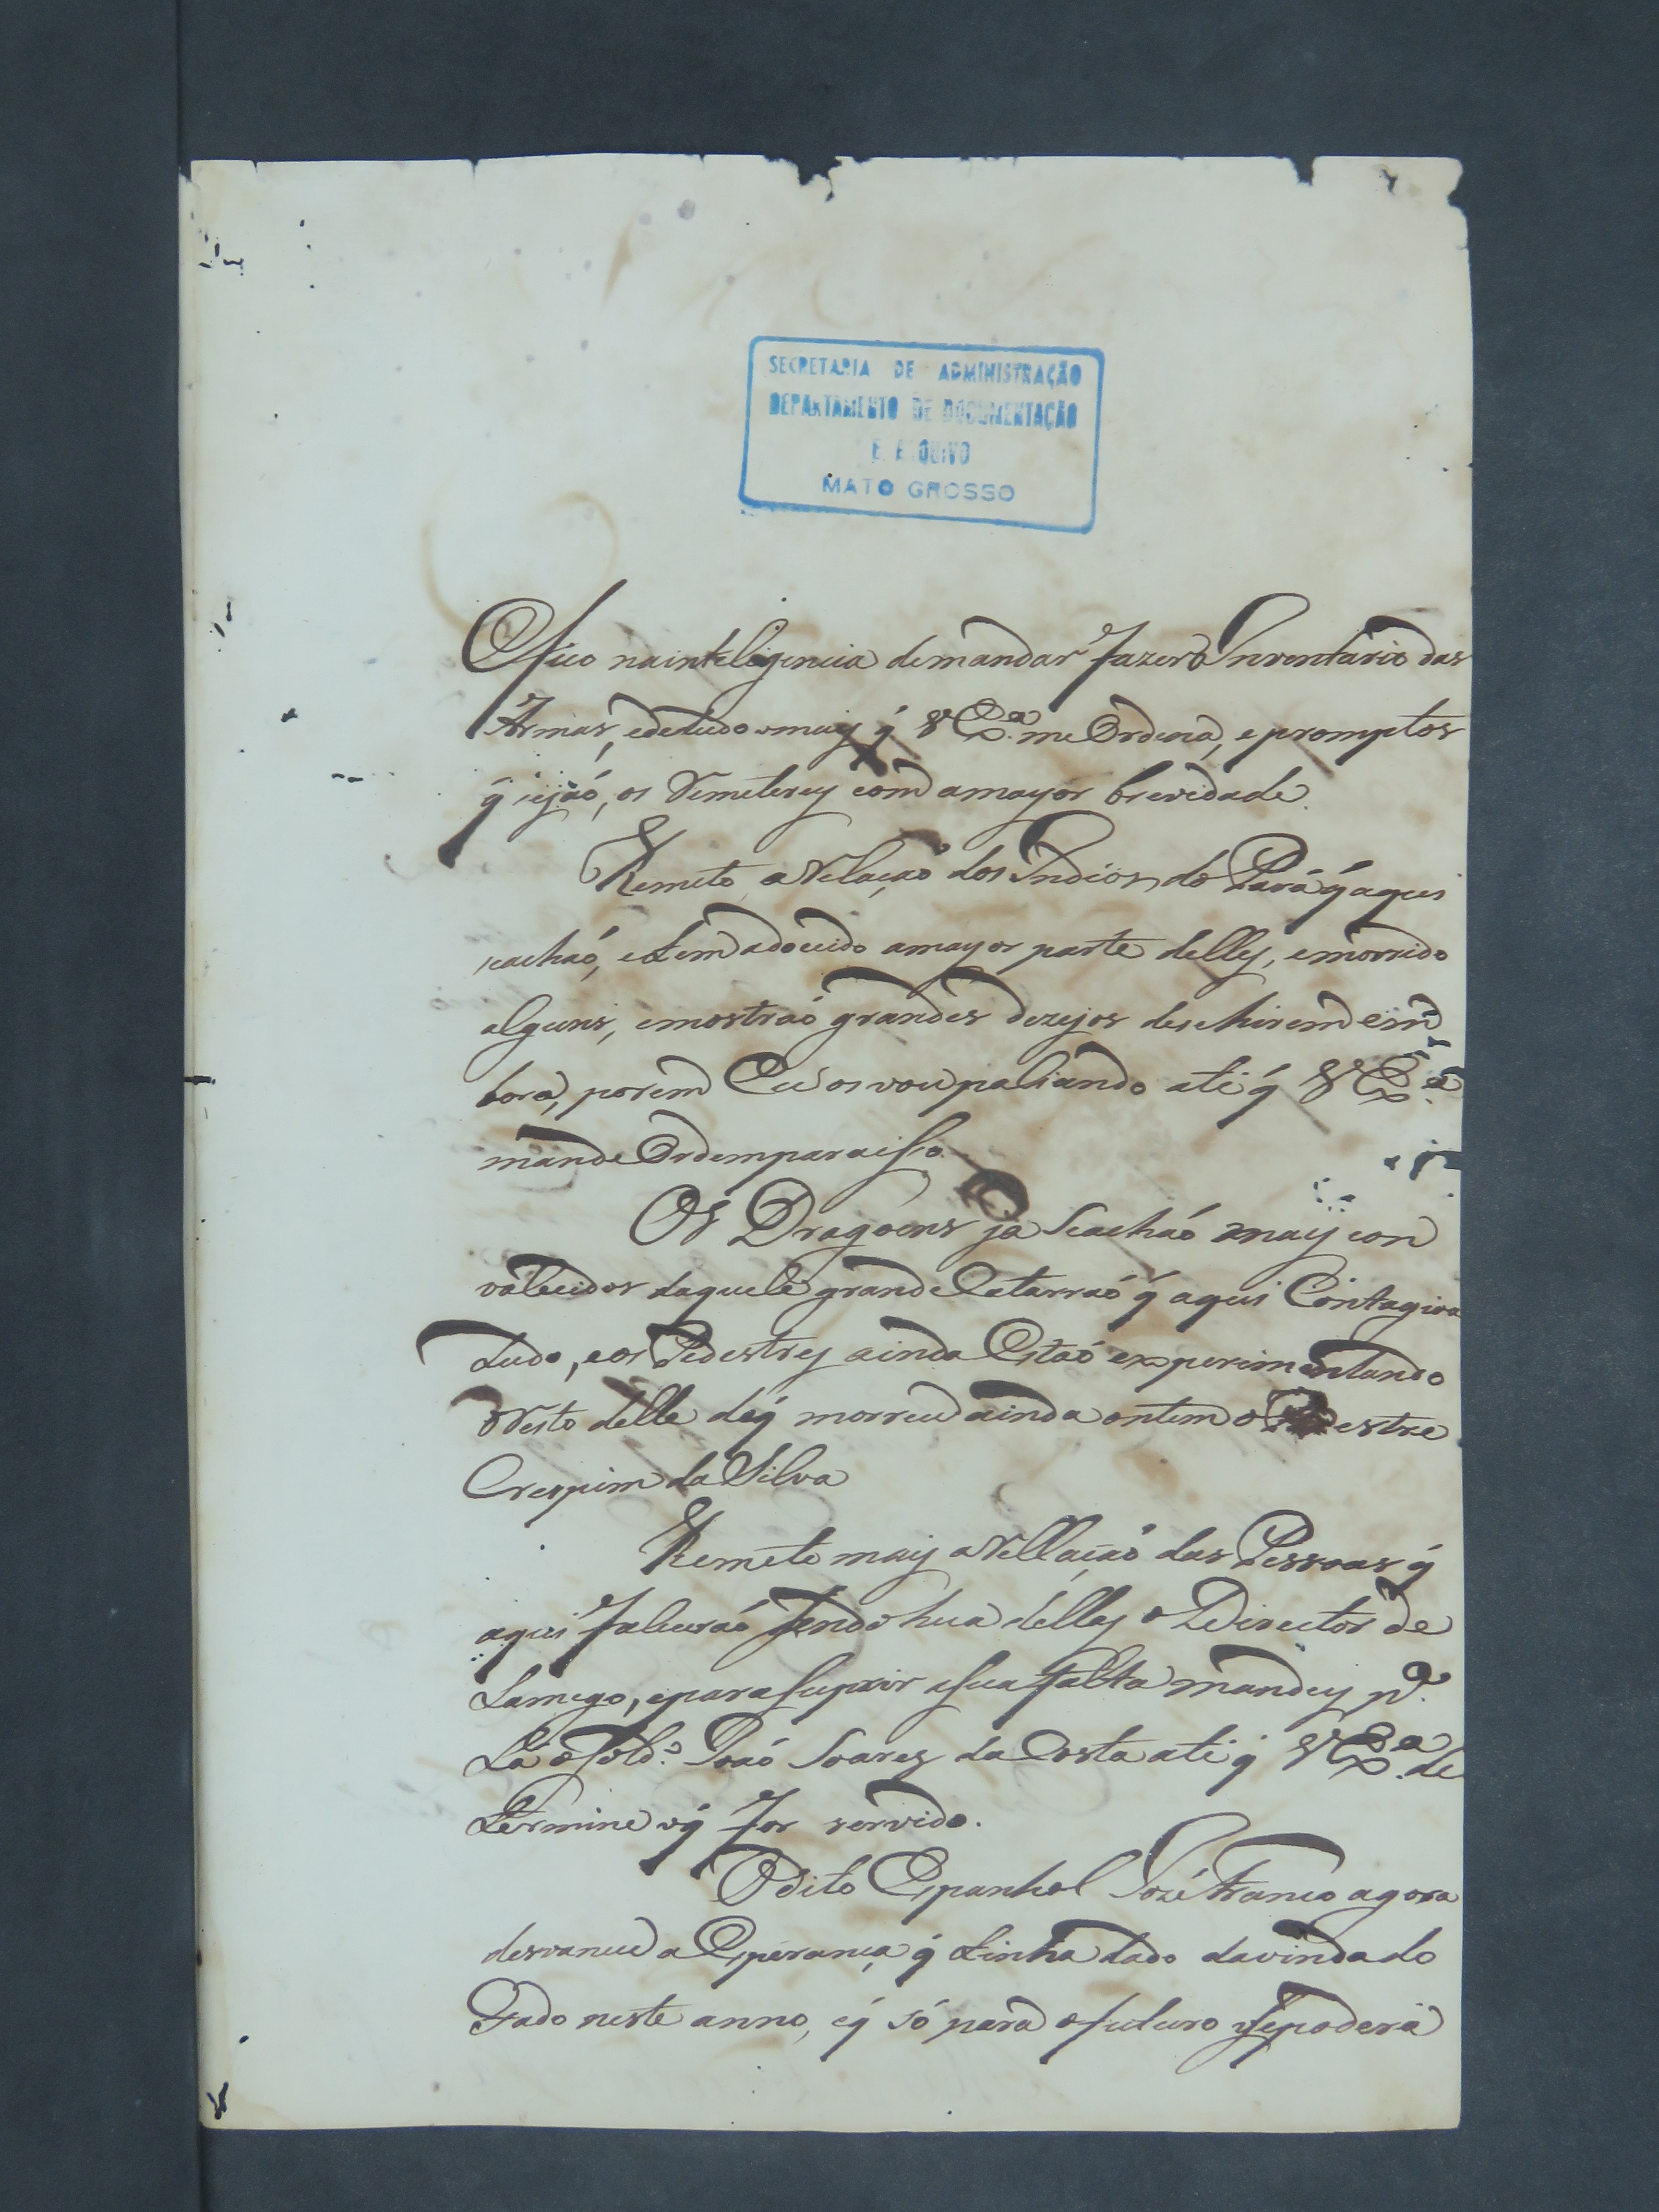 SECRETARIA DE ADMINISTRAÇÃO
DEPARTAMENTO DE DOCUMENTAÇÃO
E ARQUIVO
MATO GROSSO
Fico na inteligencia de mandar fazer o Inventario das
Armas, e de tudo o mais q̃ V Ex.ª me Ordena, e promptos
q̃ sejaó, os Remeterey com a mayor brevidade.
Remeto a Relaçaó dos Indios do Pará q̃ aqui
seachaó, e tem adoecido a mayor parte delles, e morrido
alguns, e mostraó grandes dezejos de se hirem em
bora, porem Eu os vou paliando até q̃ V Ex.ª
mande Ordem para isso.
Os Dragoens já se achaó mais con
valecidos daquele grande Catarraó q̃ aqui Contagiou
tudo, e os Pedestres ainda Estaó experimentando
o Resto delle de q̃ morreu ainda ontem o Pedestre
Crespim da Silva
Remeto mais a Rellaçaó das Pessoas q̃
aqui faleceraó sendo hua dellas o Director de
Lamego, e para suprir a sua falta mandey p.ª
Lá o Sold.º Joaó Soares da Costa até q̃ V Ex.ª de
termine o q̃ for servido.
O dito Espanhol Jozé Franco agora
desvaneceu a Esperança q̃ tinha dado da vinda do
Gado neste anno, e q̃ só para o futuro se poderá